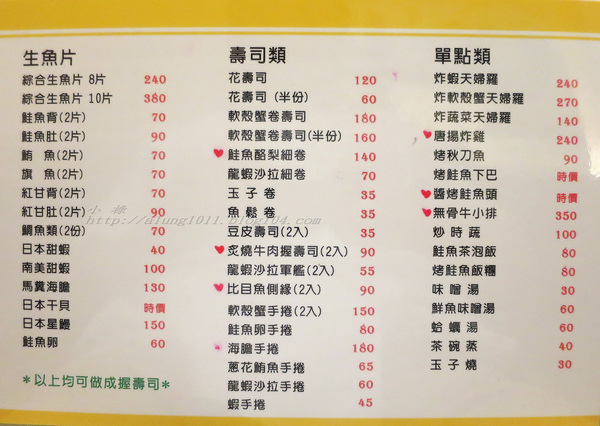 生魚片
綜合生魚片 8片 240
綜合生魚片 10片 380
鮭魚背(2片) 70
鮭魚肚(2片) 90
鮪 魚(2片) 70
旗 魚(2片) 70
紅甘背(2片) 70
紅甘肚(2片) 90
鯛魚類(2份) 70
日本甜蝦 40
南美甜蝦 100
馬糞海膽 130
日本干貝 時價
日本星鰻 150
鮭魚卵 60
*以上均可做成握壽司*
壽司類
花壽司 120
花壽司 (半份) 60
軟殼蟹卷壽司 180
軟殼蟹卷壽司(半份) 160
鮭魚酪梨細卷 140
龍蝦沙拉細卷 70
玉 子 卷 35
魚 鬆 卷 35
豆皮壽司(2入) 35
炙燒牛肉握壽司(2入) 90
龍蝦沙拉軍艦(2入) 55
比目魚側緣(2入) 90
軟殼蟹手捲(2入) 150
鮭魚卵手捲 80
海膽手捲 180
蔥花鮪魚手捲 65
龍蝦沙拉手捲 60
蝦手捲 45
單點類
炸蝦天婦羅 240
炸軟殼蟹天婦羅 270
炸蔬菜天婦羅 140
唐揚炸雞 240
烤秋刀魚 90
烤鮭魚下巴 時價
醬烤鮭魚頭 時價
無骨牛小排 350
炒 時 蔬 100
鮭魚茶泡飯 80
烤鮭魚飯糰 80
味 噌 湯 30
鮮魚味噌湯 60
蛤 蠣 湯 60
茶 碗 蒸 40
玉 子 燒 30
小 祿
http://alung1011.blog104.com